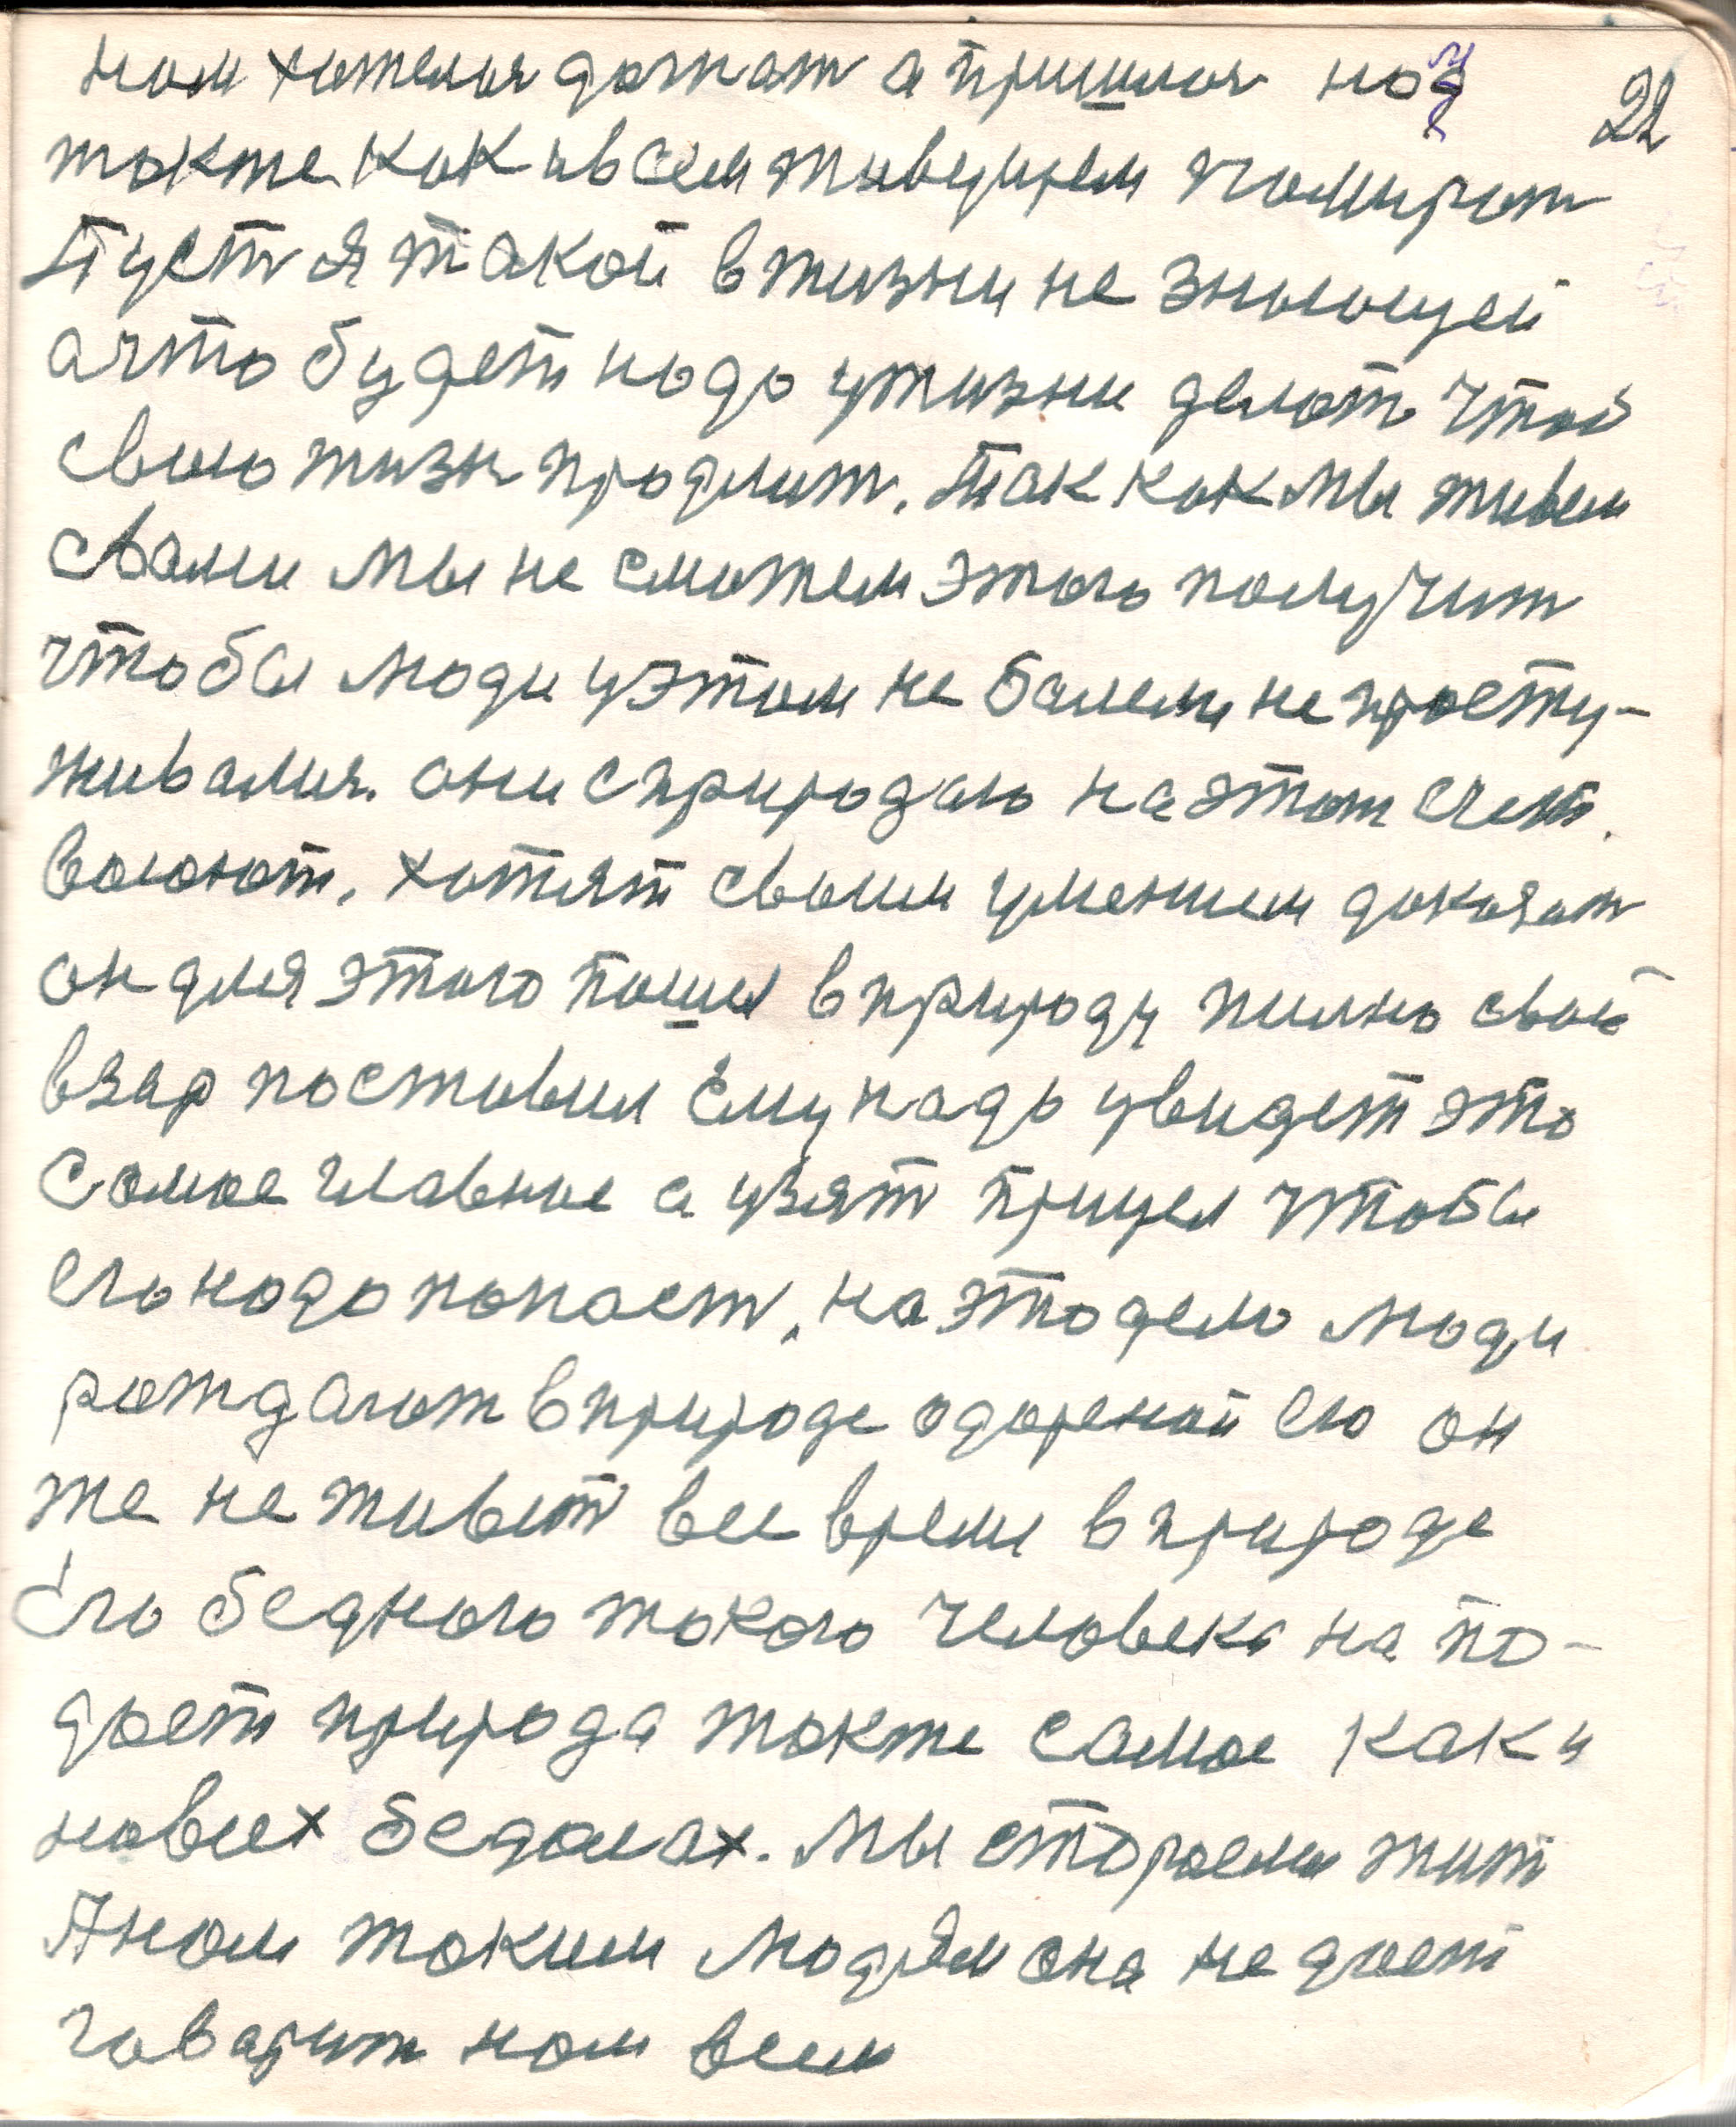 нам хотелся дагнат а пришлся нам 22
также как и всем живущем памират
Пуст я такой в жизни не знающей
а что будет надо у жизни делат чтоб
свою жизн продлит. Так как мы живем
с вами мы не сможем этого получит
чтобы люди у этом не балели не просту-
живалися. они с природаю на этот счет
воюют. хотят своим умением доказат
он для этого пошел в природу пилно свой
взар поставил ему надо увидет это
самое главное а узят прицел чтобы
его надо попаст, на это дело люди
рождают в природе одареной ею он
же не живет все время в природе
Его бедного такого человека на по-
дает природа также самое как и
на всех бедалах. Мы стораемся жит
А нам таким людям она не дает
гаварит нам всем